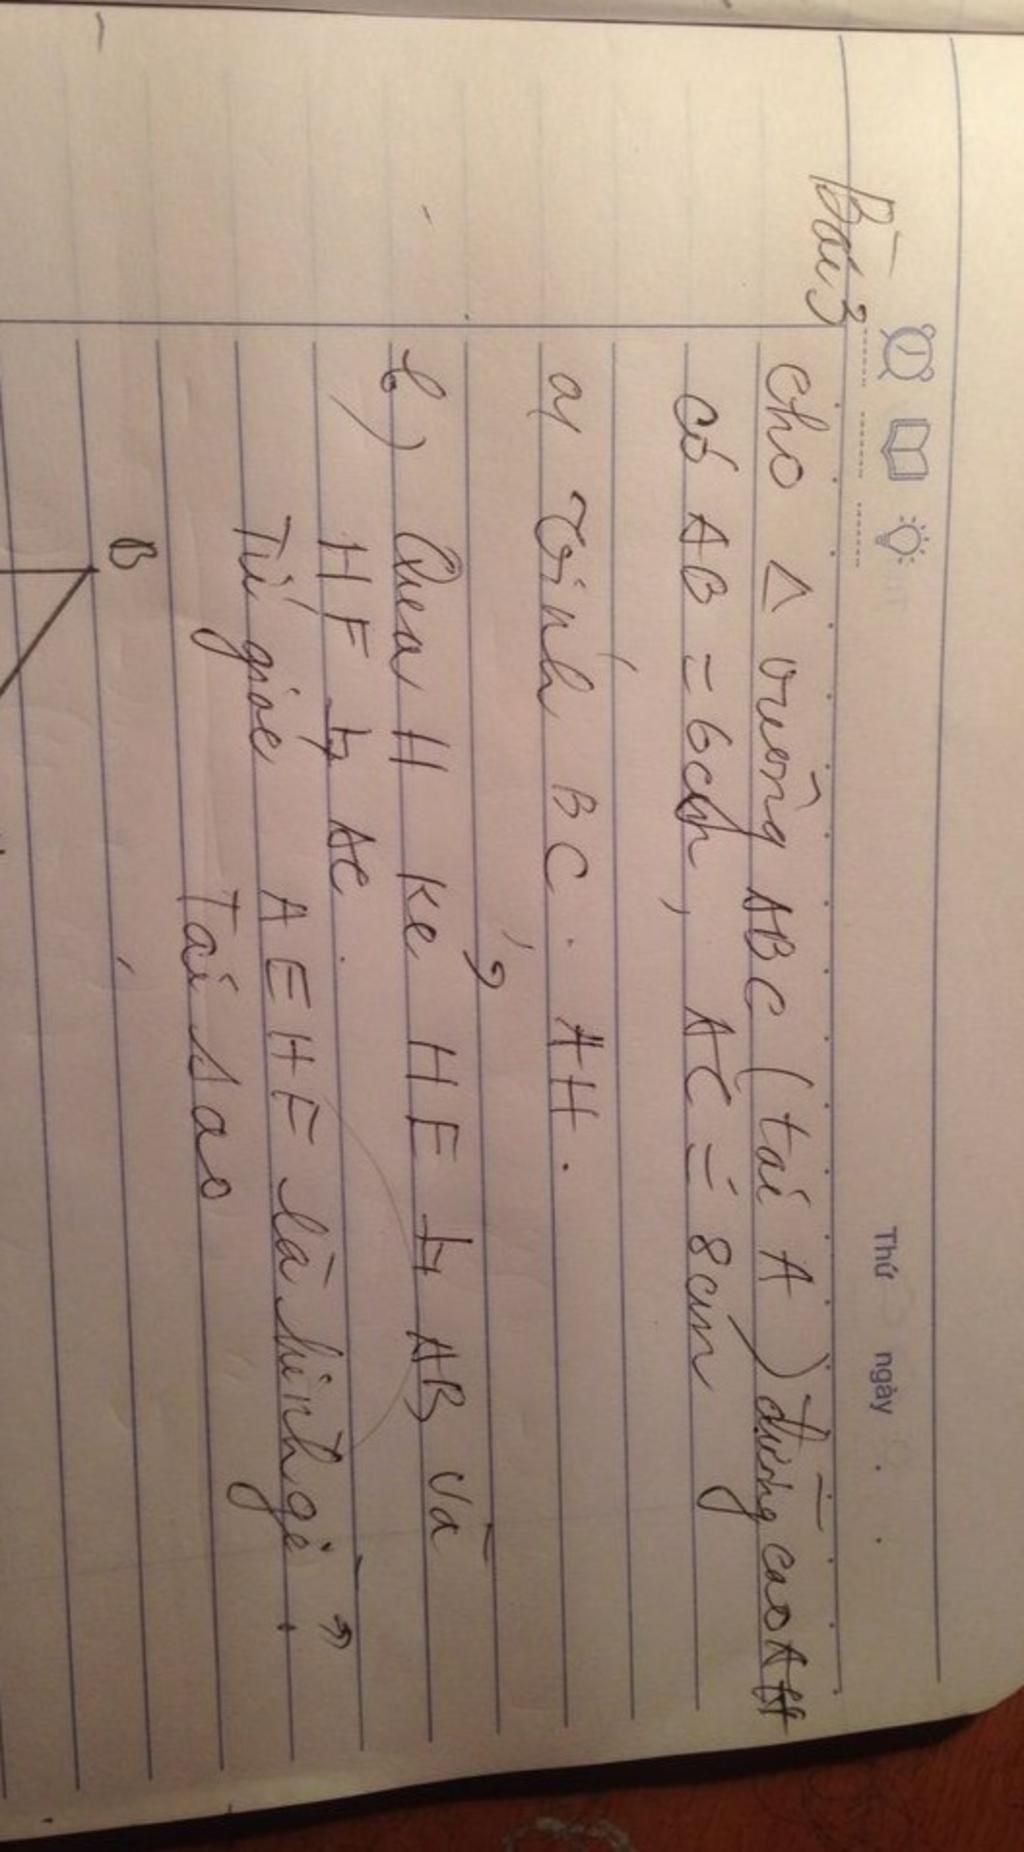 Thứ ngày
Bài 3
Cho Δ vuông ABC (tại A) đường cao AH
có AB = 6cm, AC = 8cm
a, Tính BC. AH.
b) Qua H kẻ HE ⊥ AB và
HF ⊥ AC.
Tứ giác AEHF là hình gì?
Tại sao
B